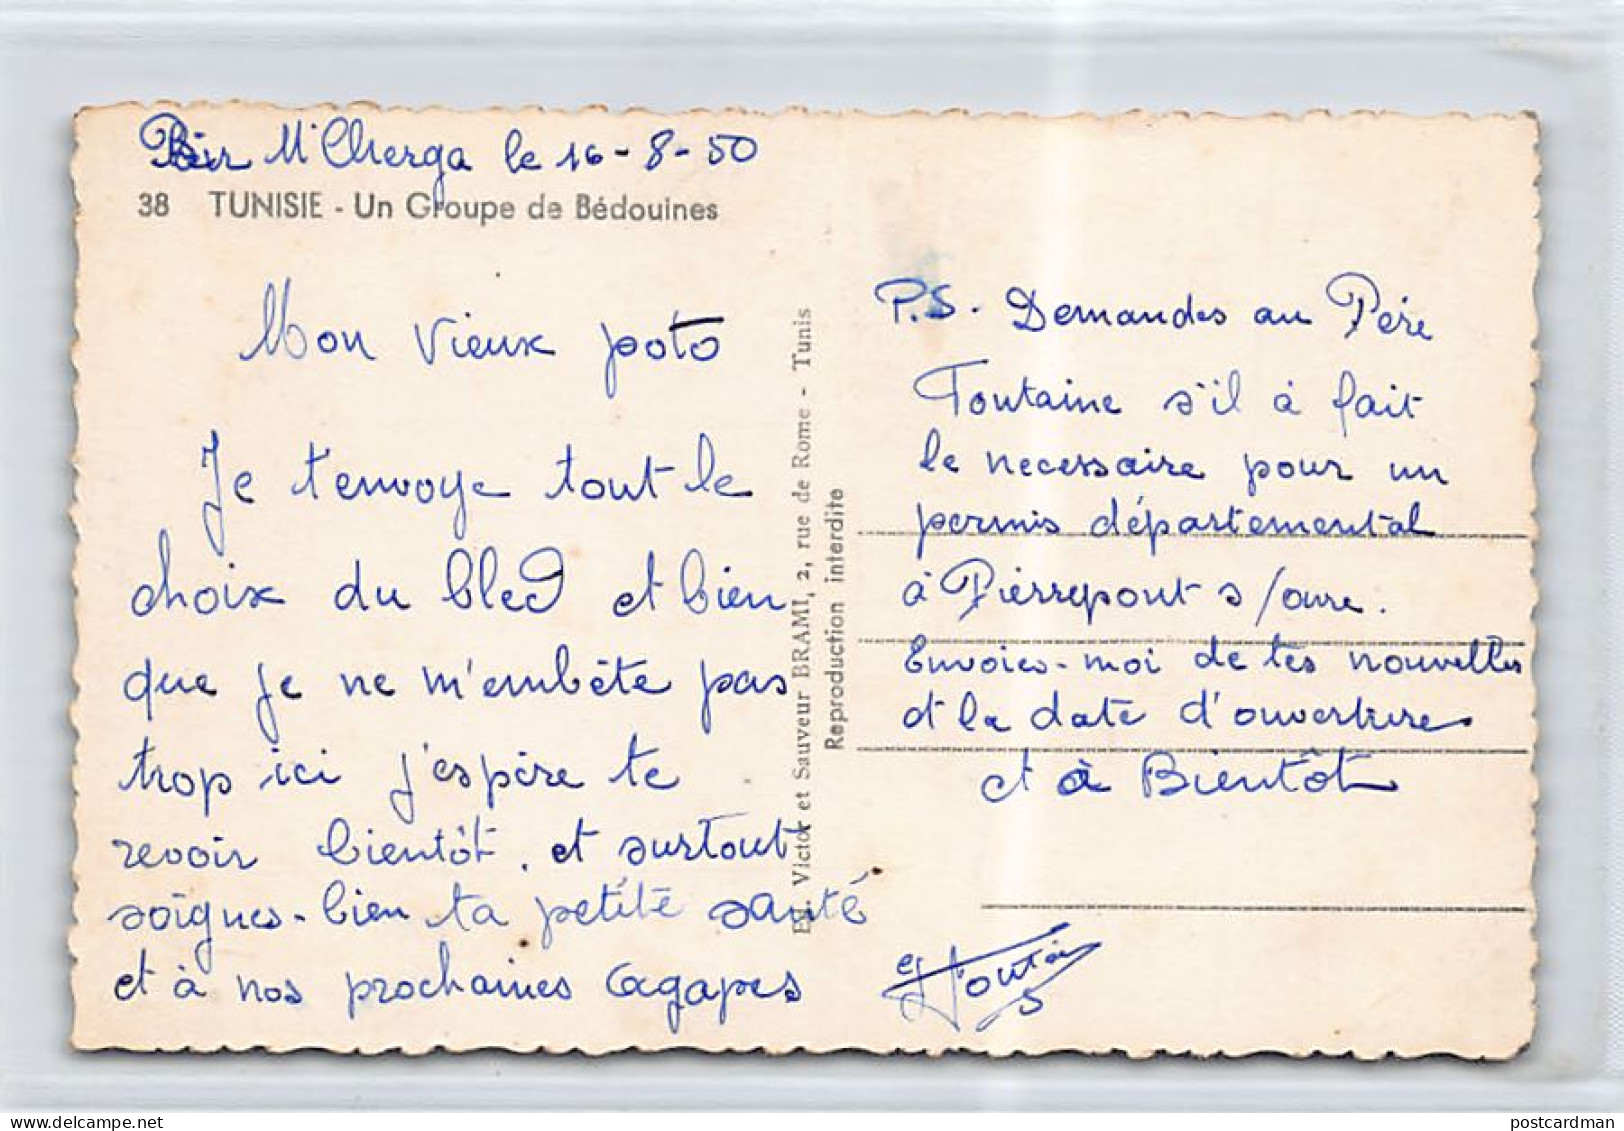 Bir M'Cherga le 16-8-50
38 TUNISIE - Un Groupe de Bédouines
Mon vieux poto
Je t'envoye tout le
choix du bled et bien
que je ne m'embète pas
trop ici j'espère te
revoir bientôt. et surtout
soignes-bien ta petite santé
et à nos prochaines agapes
Ed. Victor et Sauveur BRAMI, 2, rue de Rome - Tunis
Reproduction interdite
P.S. Demandes au Père
Fontaine s'il à fait
le necessaire pour un
permis départemental
à Pierrepont s/avre.
Envoies-moi de tes nouvelles
et la date d'ouverture.
et à Bientôt
postcardman